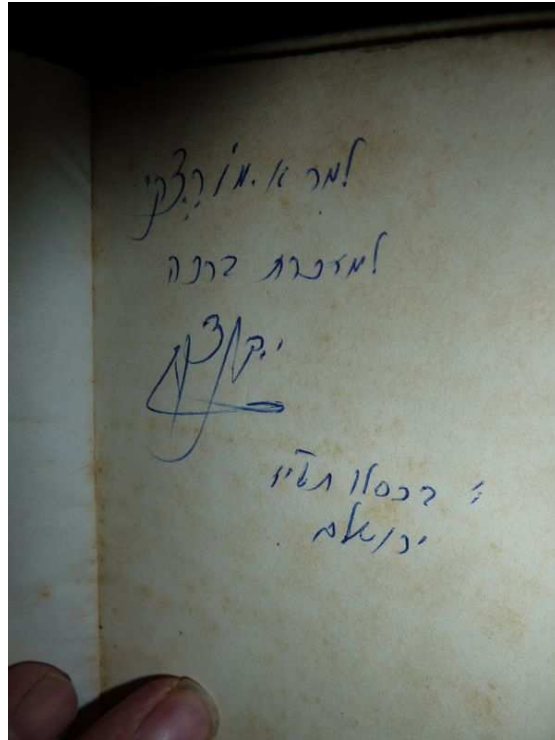 למר א. מוֹרֶצקי
למזכרת ברכה
י' בכסלו תשי"ו
ירושלם